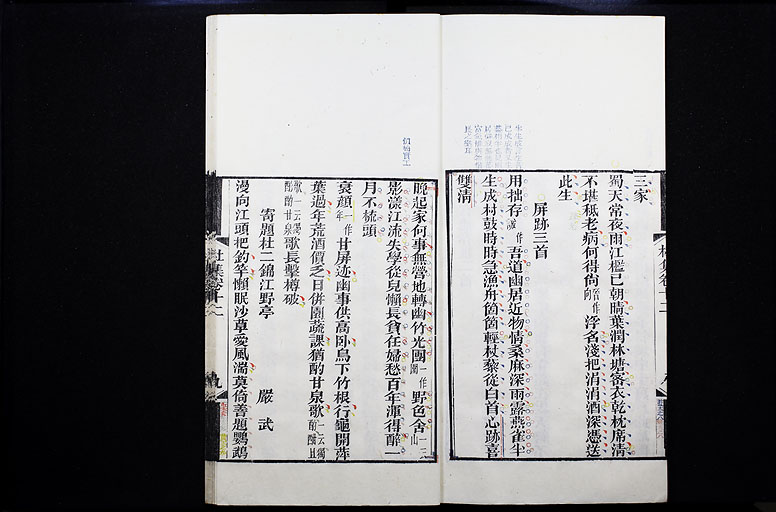 三家
蜀天常夜雨江檻已朝晴葉潤林塘密衣乾枕席清
不堪秪老病何得尚一作向浮名淺把涓涓酒深憑送
此生
屏跡三首
用拙存一作誠吾道幽居近物情桑麻深雨露燕雀半
生成村鼓時時急漁舟箇箇輕杖藜從白首心跡喜
雙清
晚起家何事無營地轉幽竹光團一作圍野色舍一云山
影漾江流失學從兒懶長貧任婦愁百年渾得醉一
月不梳頭
衰顏一作年甘屏迹幽事供高卧鳥下竹根行龜開萍
葉過年荒酒價乏日併園蔬課猶酌甘泉歌一云獨酌酣且
歌一云獨酌酌甘泉歌長擊樽破
寄題杜二錦江野亭
嚴武
漫向江頭把釣竿懶眠沙草愛風湍莫倚善題鸚鵡
杜集卷十二
九
杜集卷十二